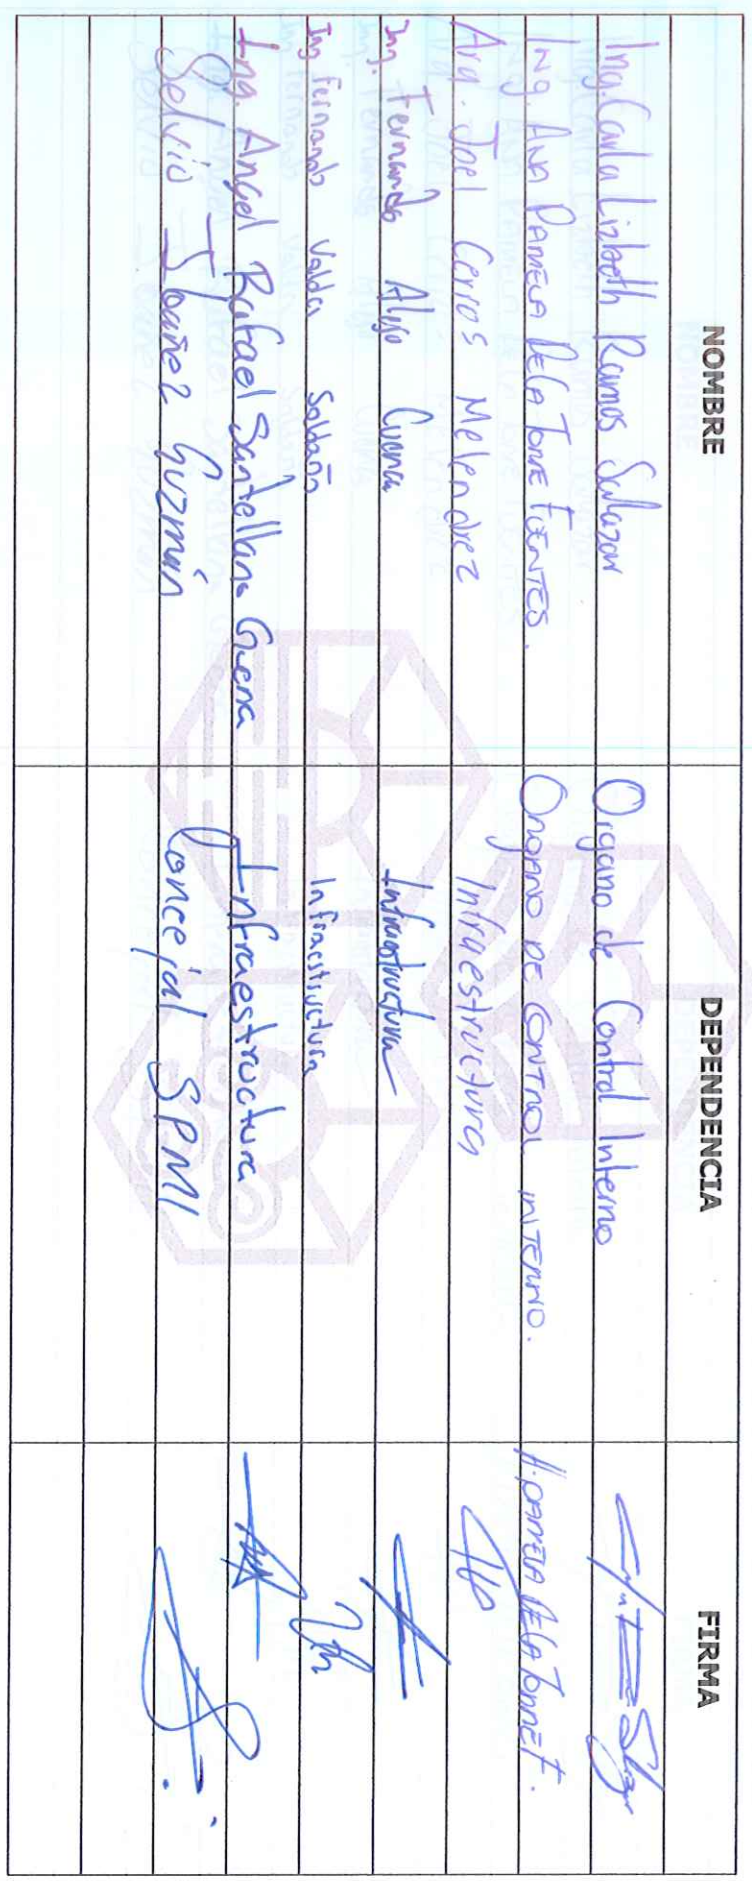 NOMBRE DEPENDENCIA FIRMA
Ing. Carla Lizbeth Ramos Salazar Organo de Control Interno
ING. ANA PAMELA DE LA TORRE FUENTES. ORGANO DE CONTROL INTERNO. A. PAMELA DE LA TORRE F.
Arq. Joel Cerros Melendrez Infraestructura
Ing. Fernando Cuenca Infraestructura
Ing Fernando Valdez Saldaña Infraestructura
Ing. Angel Rafael Santellano Infraestructura
Selvio Ibañez Guzmán Concejal SPMI